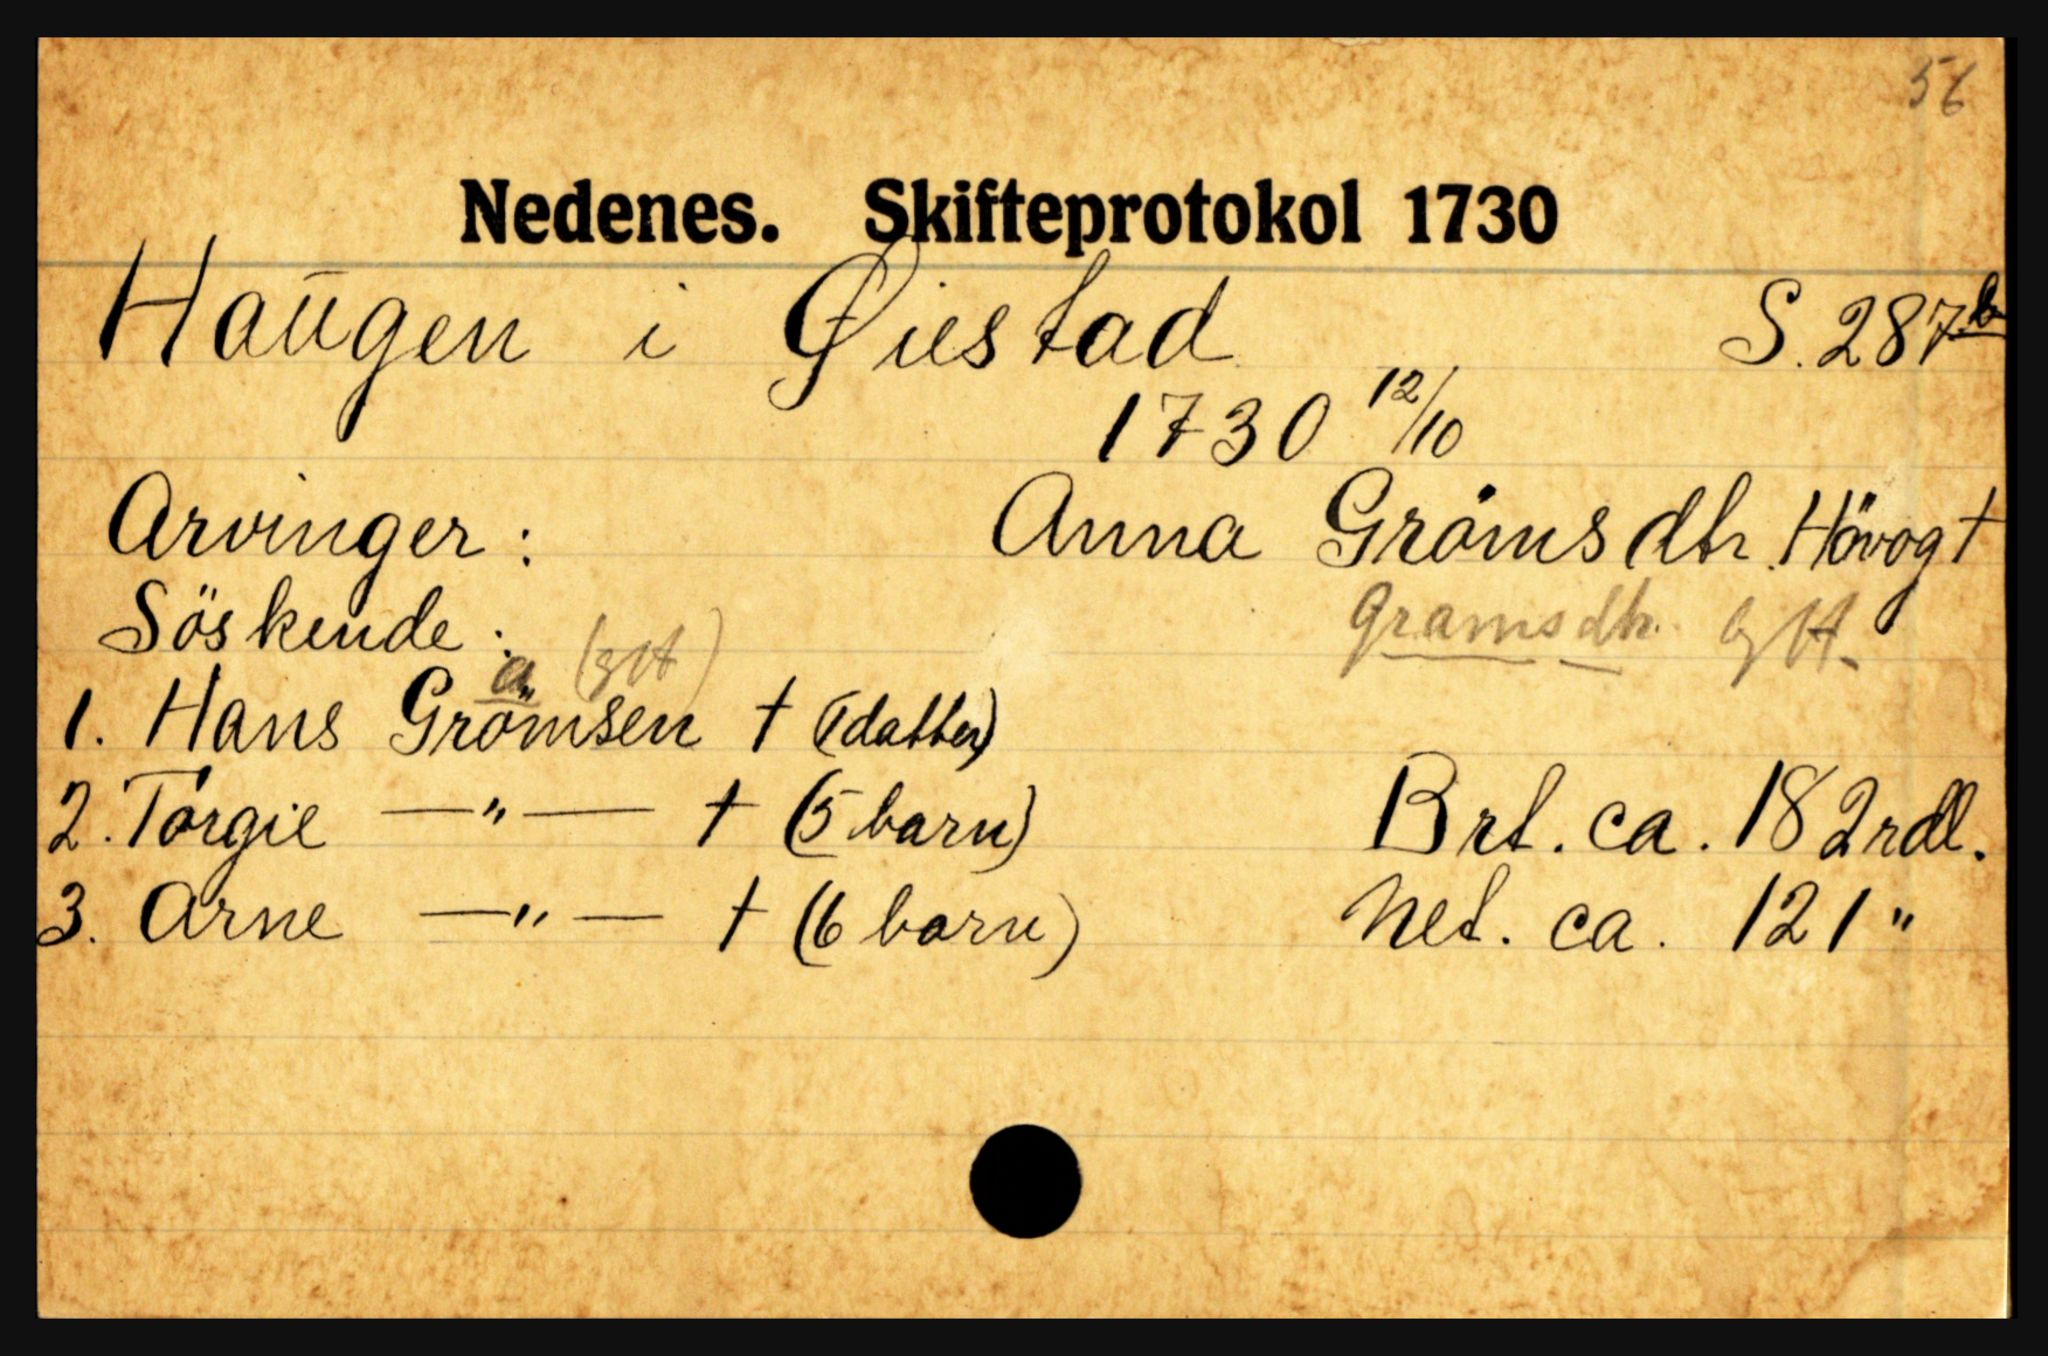 56
Nedenes. Skifteprotokol 1730
Haugen i Øiestad S. 287b
1730 12/10
Arvinger : Anna Grömsdtr. Hövogt
Söskende : Gramsdtr.
a
1. Hans Grömsen † (1 datter)
2. Torgie —„— † (5 barn) Brt. ca. 182 rdl.
3. Arne —„— † (6 barn) Net. ca. 121 "